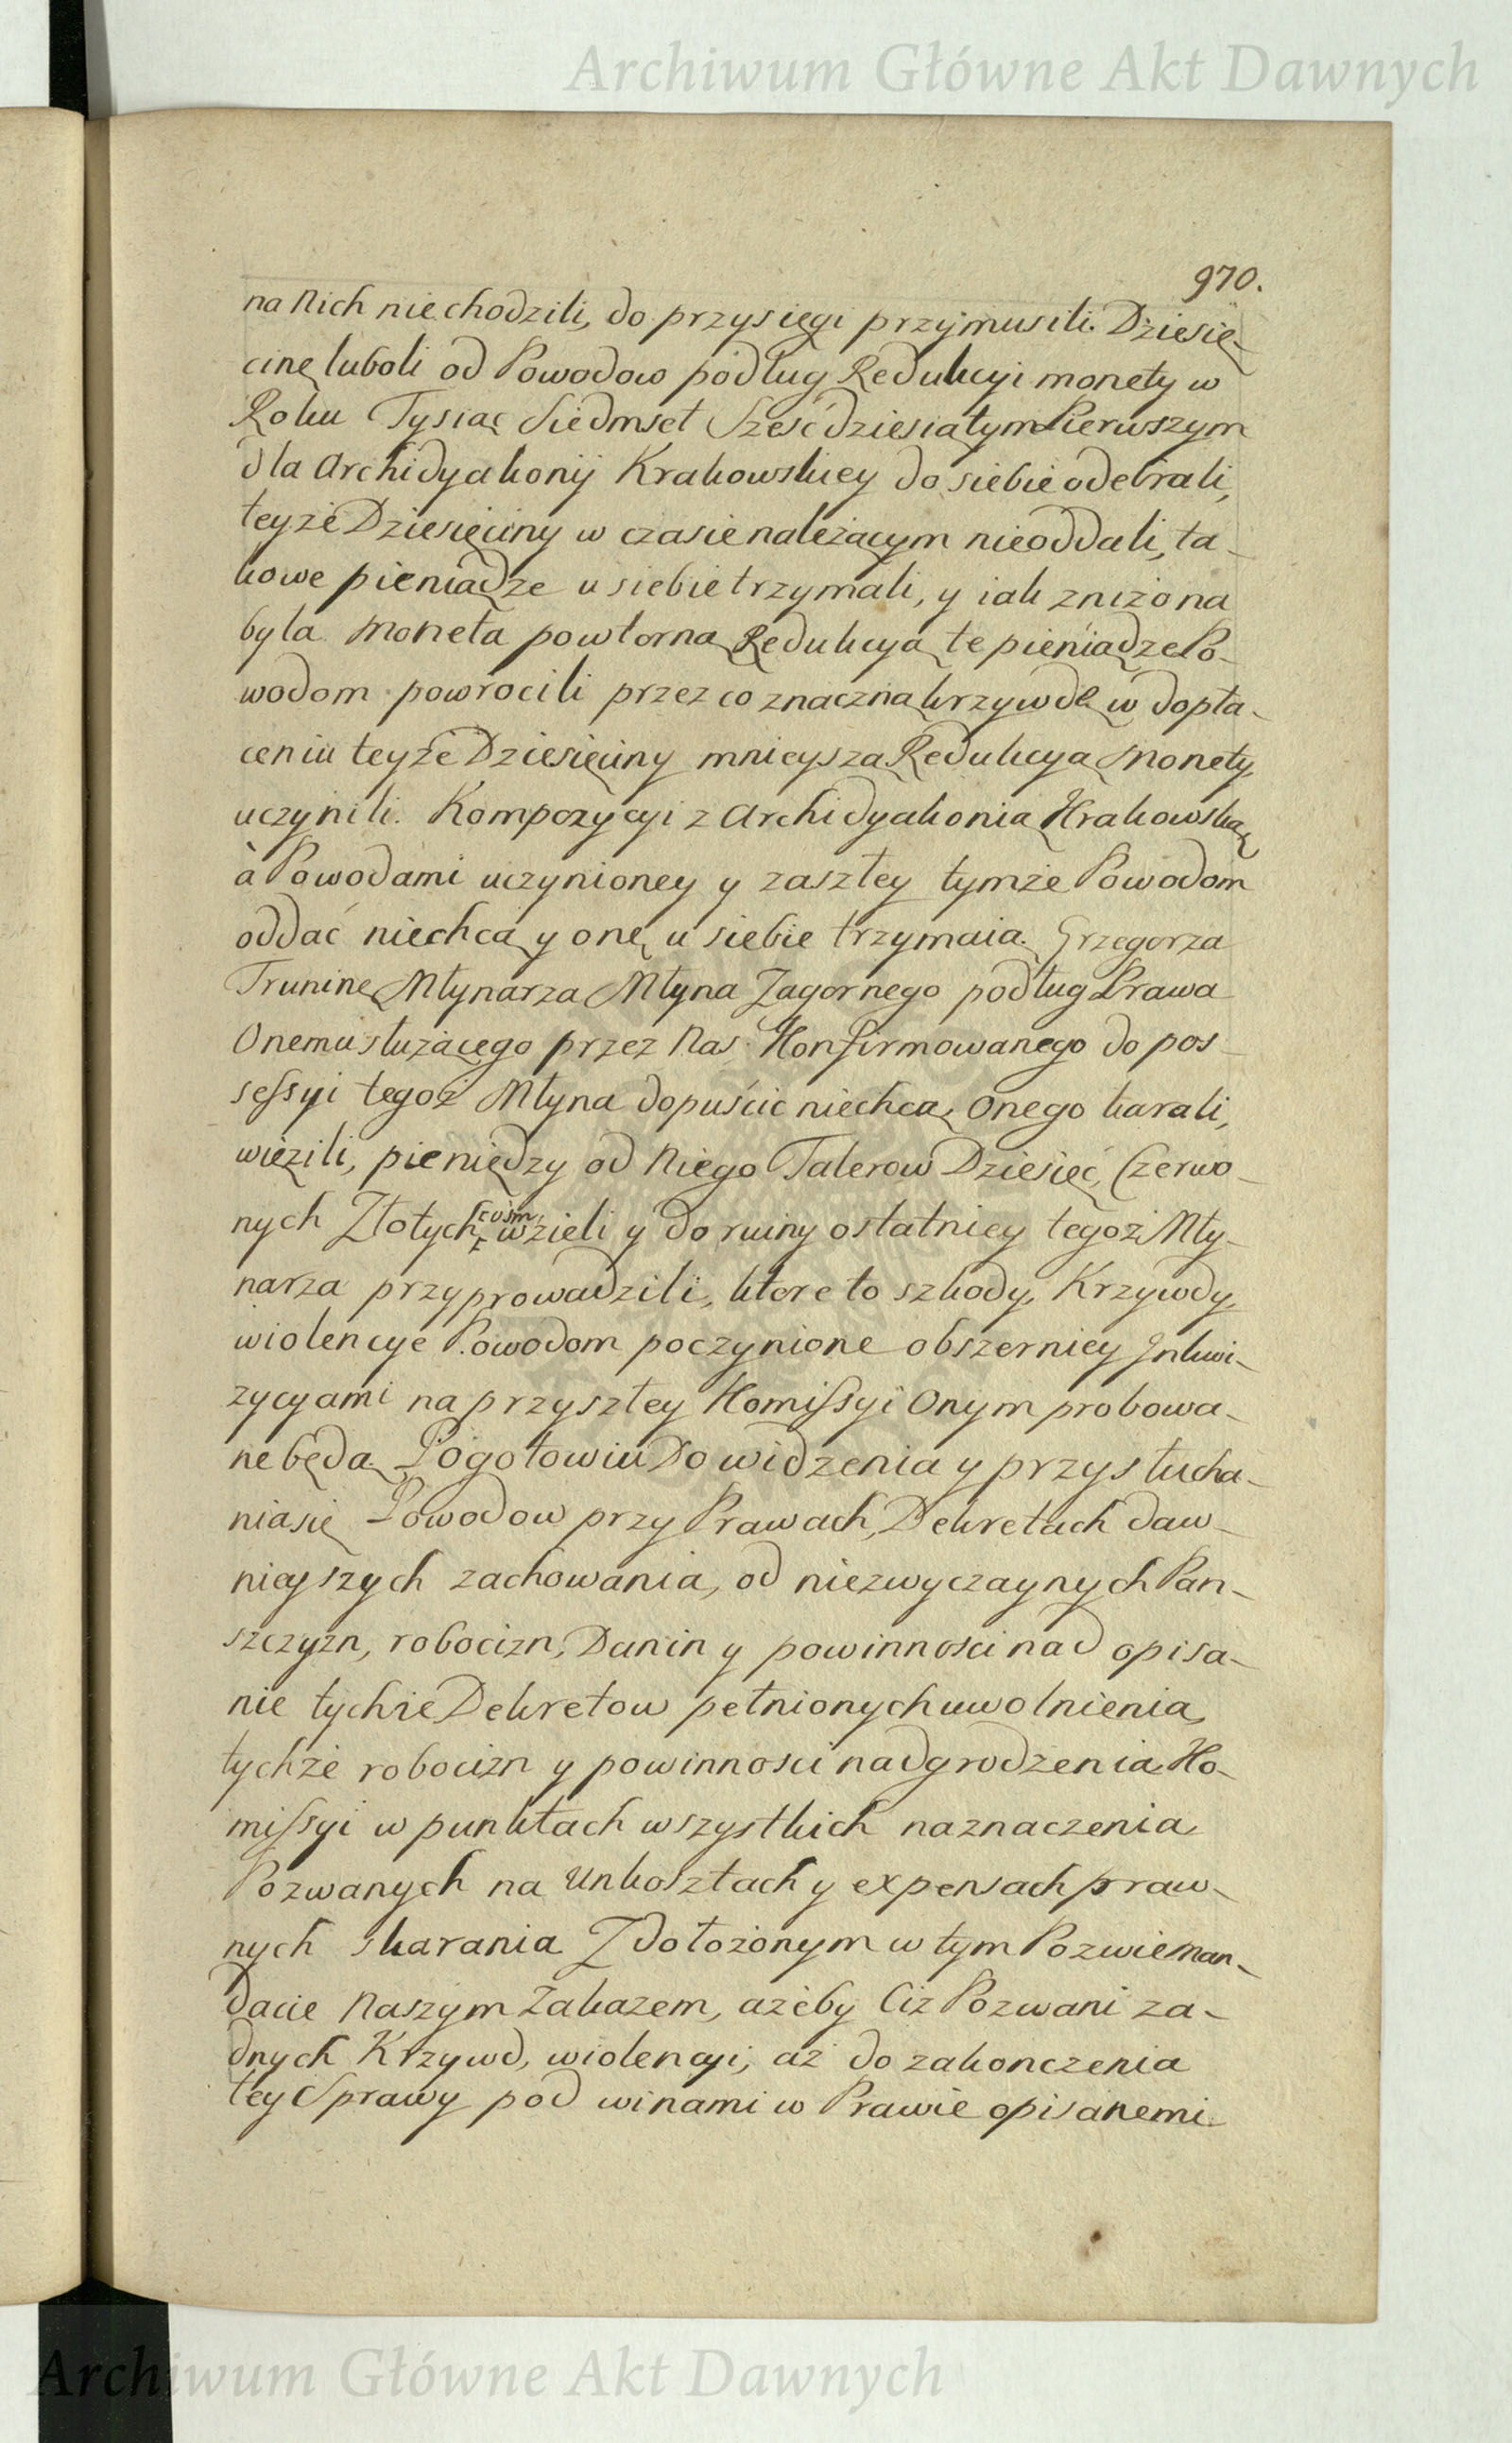 Archiwum Główne Akt Dawnych
970.
na Nich nie chodzili, do przysięgi przymusili. Dziesię-
cinę luboli od Powodow podług Redukcyi monety w
Roku Tysiąc Siedmset Sześćdziesiątym Pierwszym
dla Archidyakonij Krakowskiey do siebie odebrali,
teyże Dziesięciny w czasie należącym nieoddali, ta-
kowe pieniądze u siebie trzymali, y iak zniżona
była moneta powtorną Redukcyą te pieniądze Po-
wodom powrocili przez co znaczną krzywdę w dopła-
ceniu teyże Dziesięciny mnieyszą Redukcyą Monety
uczynili. Kompozycyi z Archidyakonią Krakowską
à Powodami uczynioney y zaszłey tymże Powodom
oddać niechcą y onę u siebie trzymaia. Grzegorza
Truninę Młynarza Młyna Zagornego podług Prawa
Onemu służącego przez Nas Konfirmowanego do pos-
sessyi tegoż Młyna dopuścić niechcą, Onego karali,
więzili, pieniędzy od Niego Talerow Dziesięć, Czerwo-
nych Złotych cośm wzieli y do ruiny ostatniey tegoż Mły-
narza przyprowadzili, ktore to szkody, Krzywdy,
wiolencye Powodom poczynione obszerniey Inkwi-
zycyami na przyszłey Komissyi Onym probowa-
ne będą. Pogotowiu Do widzenia y przysłucha-
nia się Powodow przy Prawach, Dekretach daw-
nieyszych zachowania, od niezwyczaynych Pan-
szczyzn, robocizn, Danin y powinności nad opisa-
nie tychże Dekretow pełnionych uwolnienia,
tychże robocizn y powinności nadgrodzenia Ko-
missyi w punktach wszystkich naznaczenia,
Pozwanych na Unkosztach y expensach praw-
nych skarania Z dołożonym w tym Pozwie Man-
dacie Naszym Zakazem, ażeby Ciż Pozwani ża-
dnych Krzywd, wiolencyi, aż do zakonczenia
tey Sprawy pod winami w Prawie opisanemi
Archiwum Główne Akt Dawnych